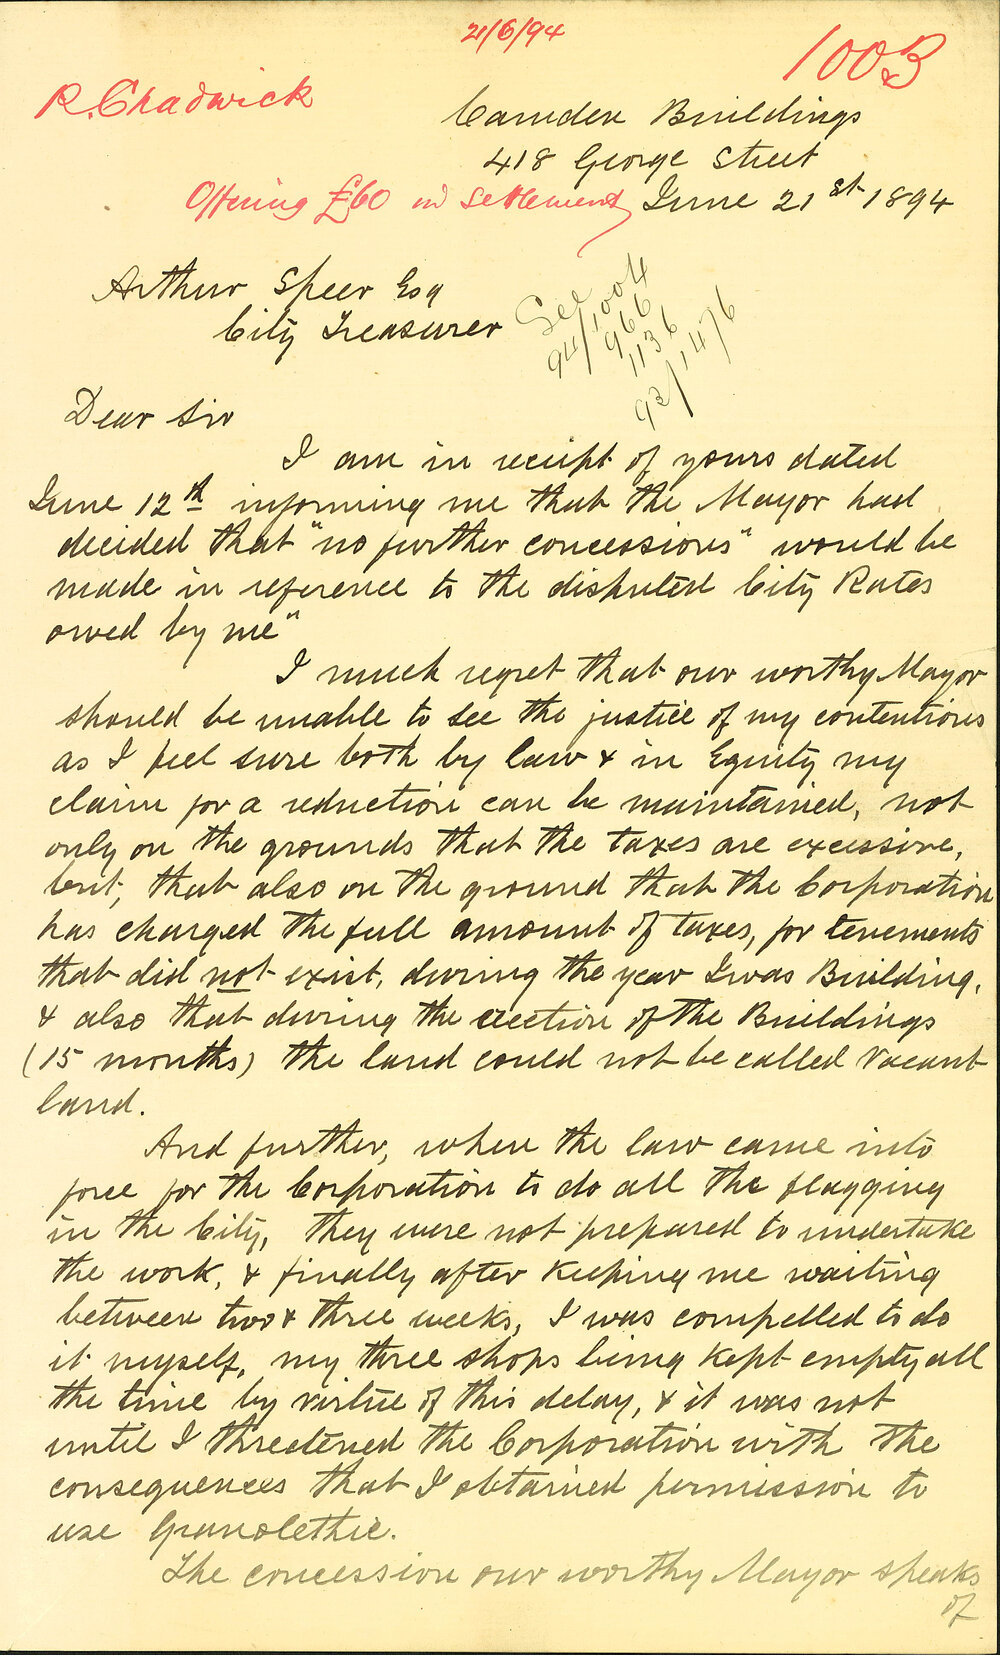 21/6/94
1003
R. Chadwick
Camden Buildings
418 George Street
Offering £60 in settlement
June 21st 1894
Arthur Speer Esq
City Treasurer
See
94/1004
966
1136
92/1476
Dear Sir
I am in receipt of yours dated
June 12th informing me that the Mayor had
decided that "no further concessions" would be
made in reference to the disputed City Rates
owed by me"
I much regret that our worthy Mayor
should be unable to see the justice of my contentions
as I feel sure both by law & in Equity my
claim for a reduction can be maintained, not
only on the grounds that the taxes are excessive,
but, that also on the ground that the Corporation
has charged the full amount of taxes, for tenements
that did not exist, during the year I was Building,
& also that during the erection of the Buildings
(15 months) the land could not be called vacant
land.
And further, when the law came into
force for the Corporation to do all the flagging
in the City, they were not prepared to undertake
the work, & finally after keeping me waiting
between two & three weeks, I was compelled to do
it myself, my three shops being kept empty all
the time by virtue of this delay, & it was not
until I threatened the Corporation with the
consequences that I obtained permission to
use Granolethic.
The concession our worthy Mayor speaks
of